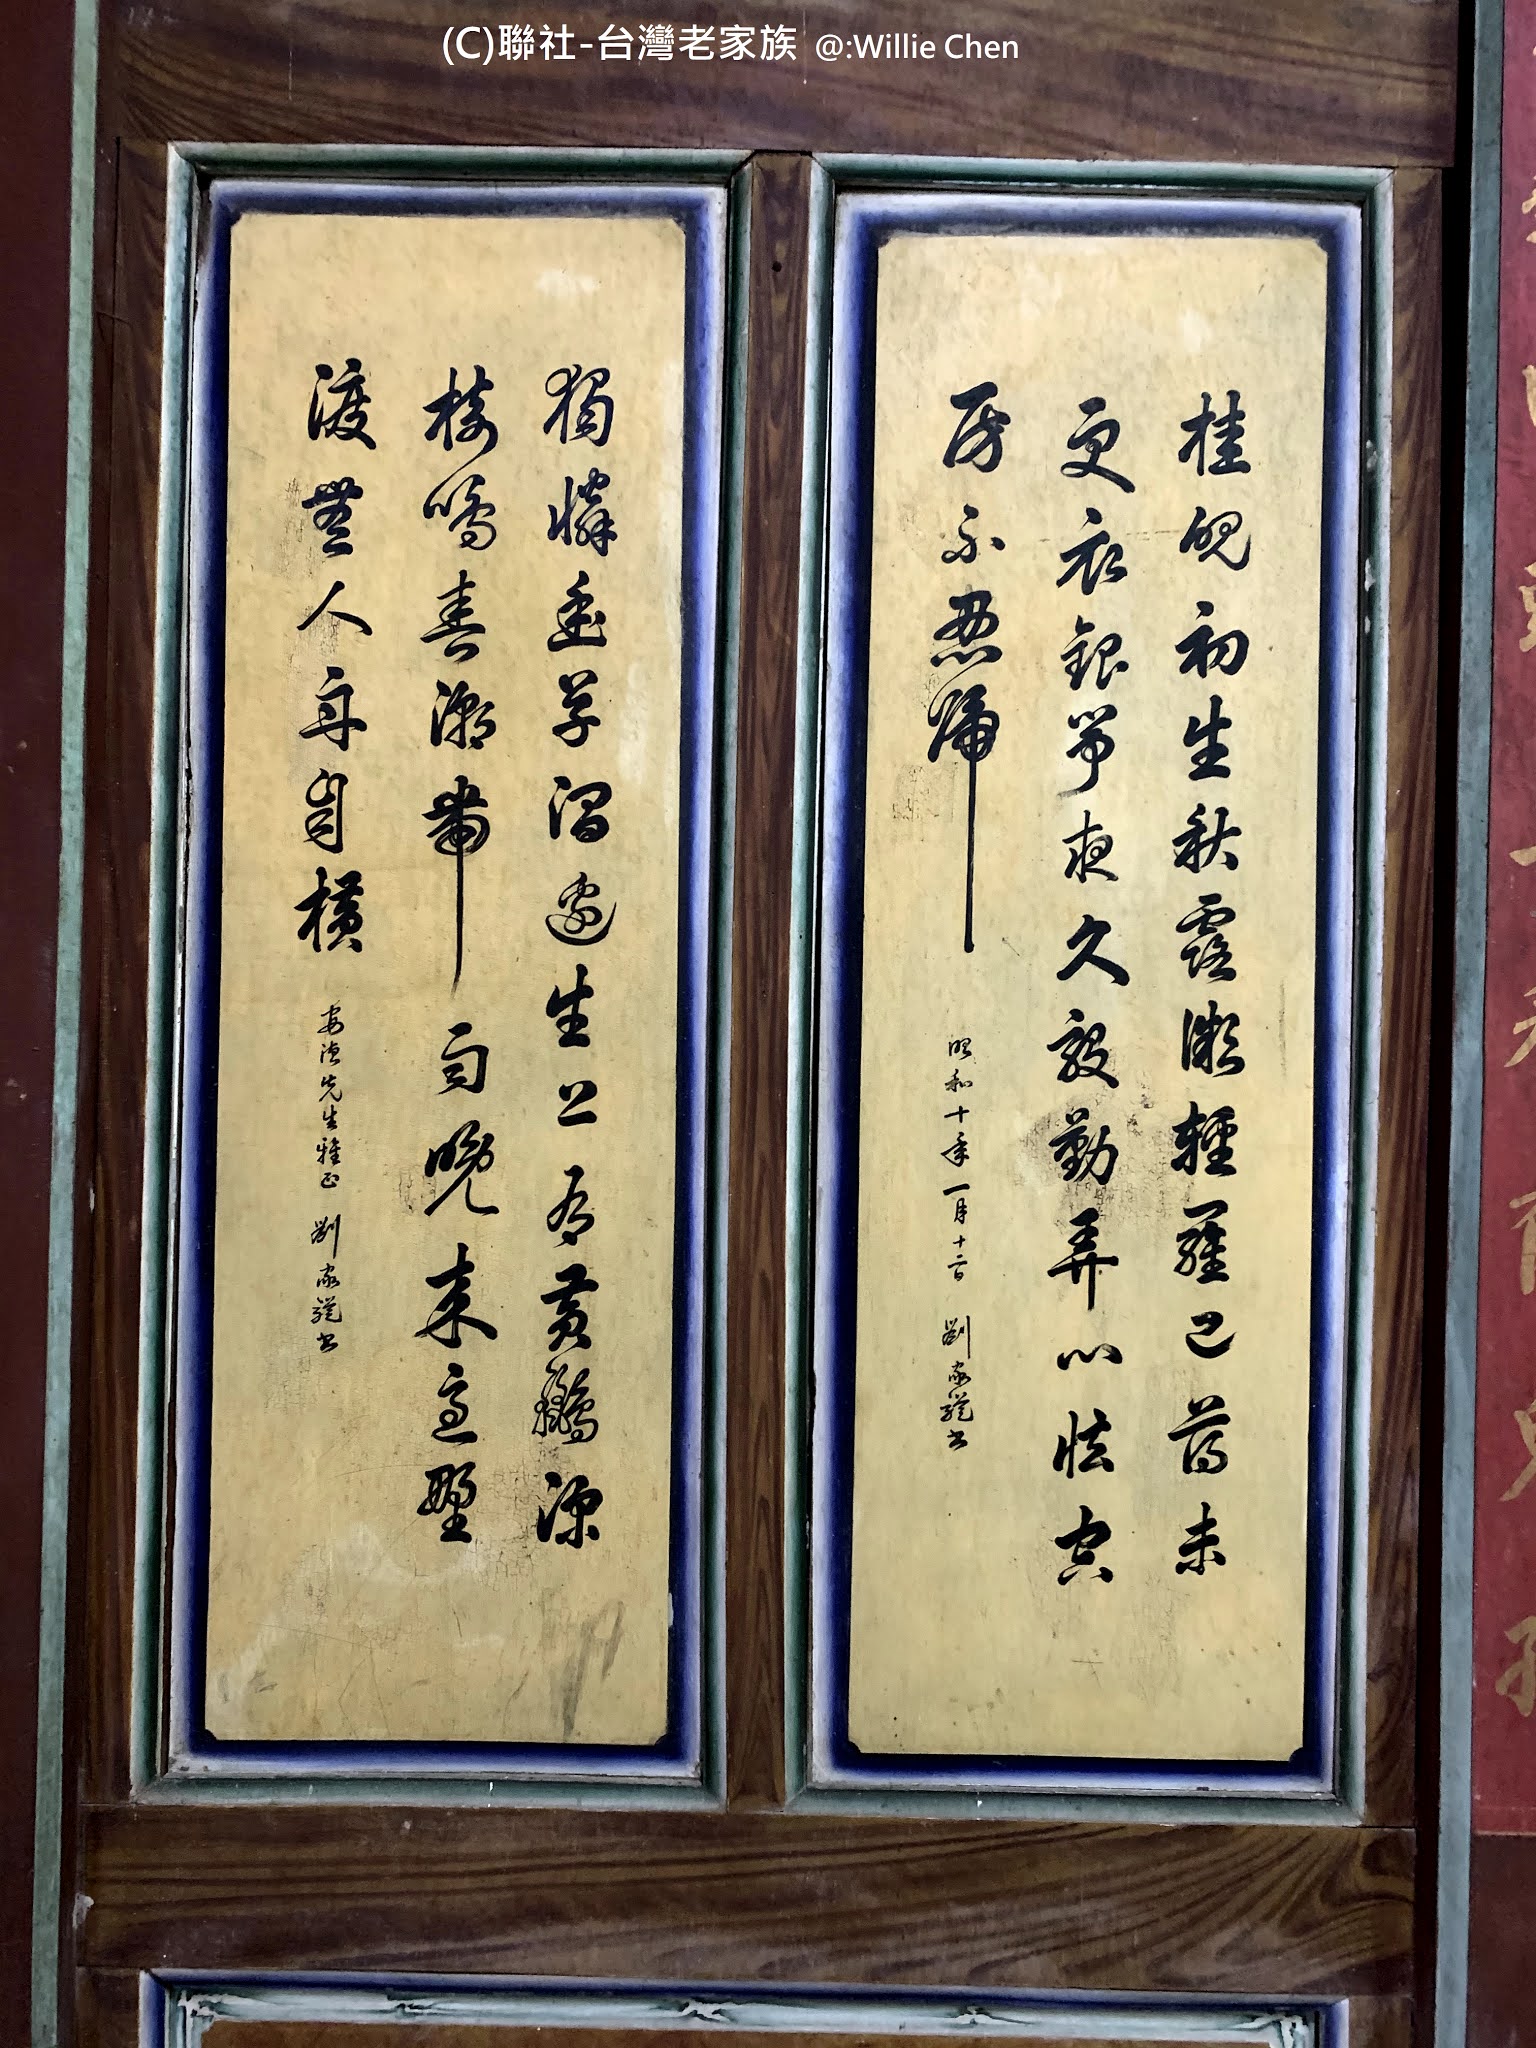 (C)聯社-台灣老家族 @:Willie Chen
桂魄初生秋露微輕羅已薄未
更衣銀箏夜久殷勤弄心怯空
房不忍歸
昭和十年一月十二日 劉家
獨憐幽草澗邊生上有黃鸝深
樹鳴春潮帶雨晚來急野
渡無人舟自橫
先生雅正 劉家